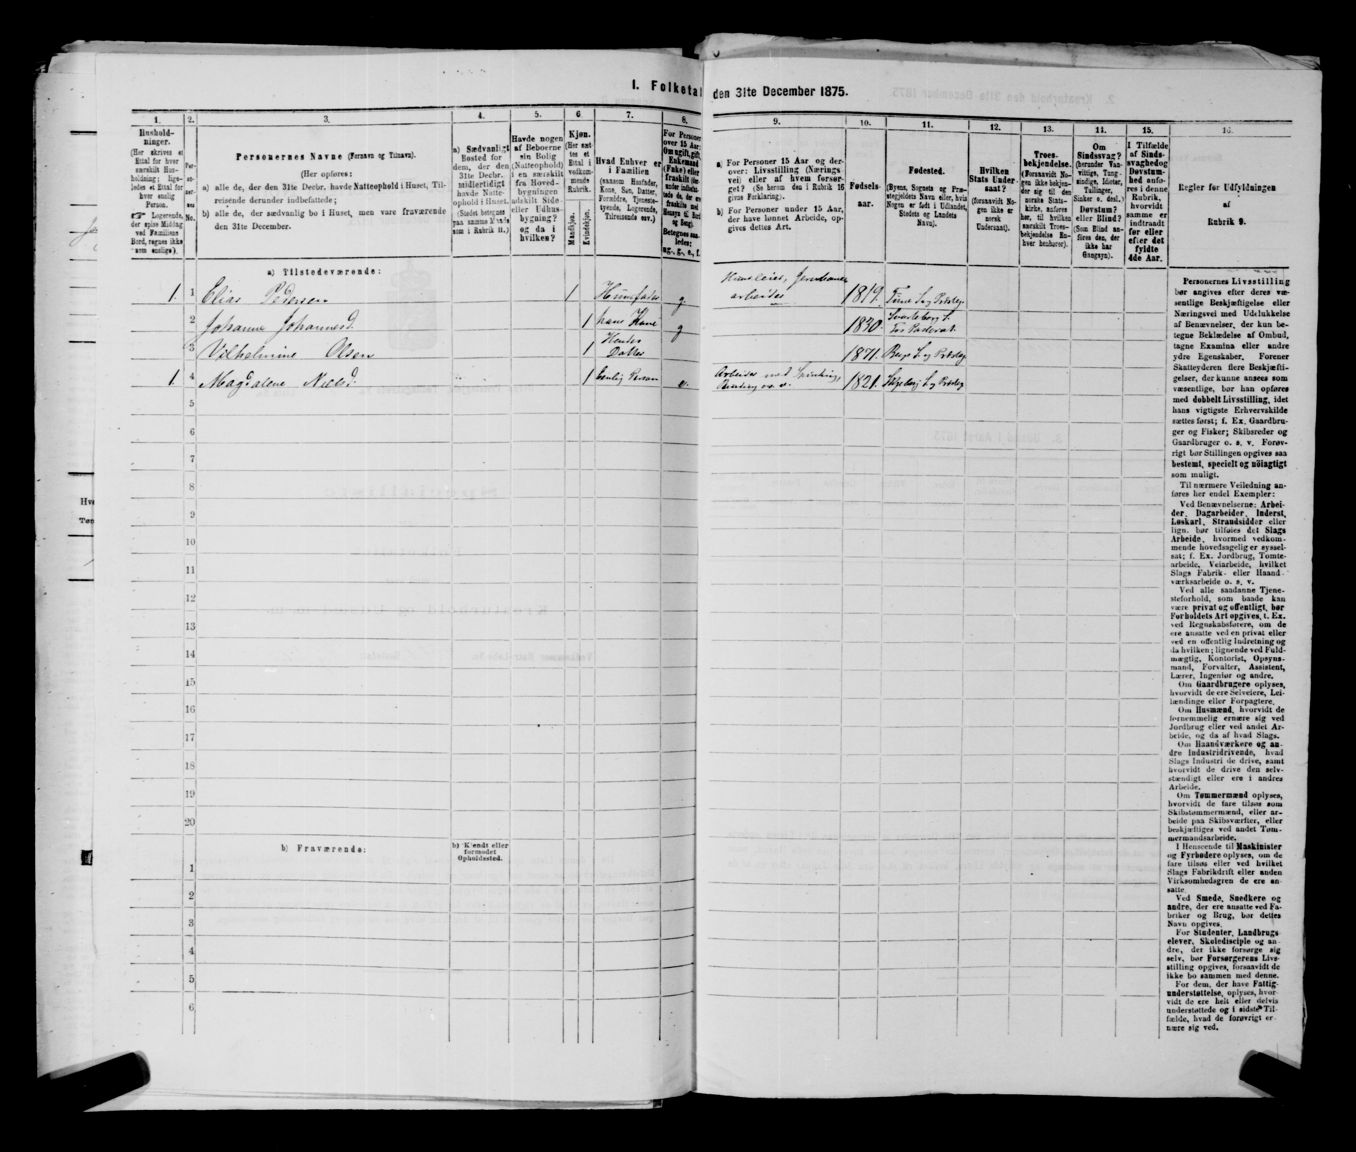 I. Folketal
den 31te December 1875.
1.
Hushold-
ninger.
(Her skrives et
Ettal for hver
særskilt Hus-
holdning; lige-
ledes et Ettal for
hver enslig
Person.
☞ Logerende,
der spise Middag
ved Familiens
Bord, regnes ikke
som enslige).
2.
No.
3.
Personernes Navne (Fornavn og Tilnavn).
(Her opføres:
a) alle de, der den 31te Decbr. havde Natteophold i Huset, Til-
reisende derunder indbefattede;
b) alle de, der sædvanlig bo i Huset, men vare fraværende
den 31te December.
4.
a) Sædvanligt
Bosted for
dem, der den
31te Decbr.
midlertidigt
havde Natte-
ophold i Huset.
(Stedet betegnes
paa samme Maade
som i Rubrik 11.)
5.
Havde nogen
af Beboerne
sin Bolig
(Natteophold)
i en særskilt
fra Hoved-
bygningen
adskilt Side-
eller Udhus-
bygning?
og da i
hvilken?
6.
Kjøn.
(Her sæt-
tes et
Ettal i
vedkom-
mende
Rubrik.
Mandkjøn.
Kvindekjøn.
7.
Hvad Enhver er
i Familien
(saasom Husfader,
Kone, Søn, Datter,
Forældre, Tjeneste-
tyende, Logerende,
Tilreisende osv.)
8.
For Personer
over 15 Aar:
Om ugift, gift,
Enkemand
(Enke) eller
fraskilt
Betegnes saa-
ledes:
ug., g., e., f.
9.
a) For Personer 15 Aar og der-
over: Livsstilling (Nærings-
vei) eller af hvem forsør-
get? (Se herom den i Rubrik 16
givne Forklaring).
b) For Personer under 15 Aar,
der have lønnet Arbeide, op-
gives dettes Art.
10.
Fødsels-
aar.
11.
Fødested.
(Byens, Sognets og Præ-
stegjeldets Navn eller, hvis
Nogen er født i Udlandet,
Stedets og Landets
Navn).
12.
Hvilken
Stats Under-
saat?
(forsaavidt No-
gen ikke er
norsk
Undersaat).
13.
Troes-
bekjendelse.
(Forsaavidt No-
gen ikke bekjen-
der sig til den
norske Stats-
kirke, anføres
her, til hvilken
særskilt Troes-
bekjendelse En-
hver henhører).
14.
Om
Sindssvag?
(herunder Van-
vittige, Tung-
sindige, Idioter,
Tullinger,
Sinker o. desl.)
Døvstum?
eller Blind?
(Som Blind an-
føres den, der
ikke har
Gangsyn).
15.
I Tilfælde
af Sinds-
svaghed og
Døvstum-
hed anfø-
res i denne
Rubrik,
hvorvidt
samme er
indtraadt
før eller
efter det
fyldte
4de Aar.
16.
Regler for Udfyldningen
af
Rubrik 9.
a) Tilstedeværende:
1. 1 Elias Pedersen 1 Huusfader g Huusleier, Jernbane
arbeider 1819. Tune S. og Præstegj.
2 Johanne Johannesd. 1 hans Kone g 1830.
3 Vilhelmine Olsen 1 Datter 1871. S. og Præstegj.
1. 4 Magdalene Nielsd. 1 Enslig Person Arbeider med Spinding, 1821. Skjeberg S. og Præstegj.
5
6
7
8
9
10
11
12
13
14
15
16
17
18
19
20
b) Fraværende:
b) Kjendt eller
formodet
Opholdssted.
1
2
3
4
5
6
Personernes Livsstilling
bør angives efter deres væ-
sentlige Beskjæftigelse eller
Næringsvei med Udelukkelse
af Benævnelser, der kun be-
tegne Beklædelse af Ombud,
tagne Examina eller andre
ydre Egenskaber. Forener
Skatteyderen flere Beskjæfti-
gelser, der kunne ansees som
væsentlige, bør han opføres
med dobbelt Livsstilling, idet
hans vigtigste Erhvervskilde
sættes først; f. Ex. Gaardbru-
ger og Fisker; Skibsreder og
Gaardbruger o. s. v. Forøv-
rigt bør Stillingen opgives saa
bestemt, specielt og nöiagtigt
som muligt.
Til nærmere Veiledning an-
føres her endel Exempler:
Ved Benævnelserne: Arbei-
der, Dagarbeider, Inderst,
Løskarl, Strandsidder eller
lign. bør tilføies det Slags
Arbeide, hvormed vedkom-
mende hovedsagelig er syssel-
sat; f. Ex. Jordbrug, Tomte-
arbeide, Veiarbeide, hvilket
Slags Fabrik- eller Haand-
værksarbeide o. s. v.
Ved alle saadanne Tjene-
steforhold, som baade kan
være privat og offentligt, bør
Forholdets Art opgives, t. Ex.
ved Regnskabsførere, om de
ere ansatte ved en privat eller
ved en offentlig Indretning og
da hvilken; lignende ved Fuld-
mægtig, Kontorist, Opsyns-
mand, Forvalter, Assistent,
Lærer, Ingeniør og andre.
Om Gaardbrugere oplyses,
hvorvidt de ere Selveiere, Lei-
lændinge eller Forpagtere.
Om Husmænd, hvorvidt de
fornemmelig ernære sig ved
Jordbrug eller ved andet Ar-
beide, og da af hvad Slags.
Om Haandværkere og an-
dre Industridrivende, hvad
Slags Industri de drive, samt
hvorvidt de drive den selv-
stændigt eller ere i andres
Arbeide.
Om Tømmermænd oplyses,
hvorvidt de fare tilsøs som
Skibstømmermænd, eller ar-
beide paa Skibsværfter, eller
beskjæftiges ved andet Tøm-
mermandsarbeide.
I Henseende til Maskinister
og Fyrbødere oplyses, om de
fare tilsøs eller ved hvilket
Slags Fabrikdrift eller anden
Virksomhedsgren de ere an-
satte.
Ved Smede, Snedkere og
andre, der ere ansatte ved Fa-
briker og Brug, bør dettes
Navn opgives.
For Studenter, Landbrugs-
elever, Skoledisciple og an-
dre, der ikke forsørge sig
selv, bør Forsørgerens Livs-
stilling opgives, forsaavidt de
ikke bo sammen med denne.
For dem, der have Fattig-
understøttelse, oplyses, hvor-
vidt de ere helt eller delvis
understøttede og i sidste Til-
fælde, hvad de forøvrigt er-
nære sig ved.